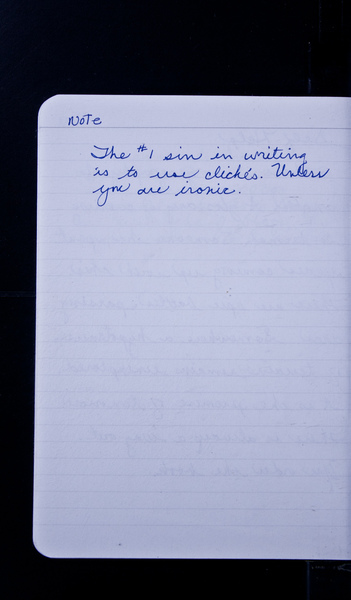 Note
The #1 sin in writing
is to use clichés. Unless
you are ironic.